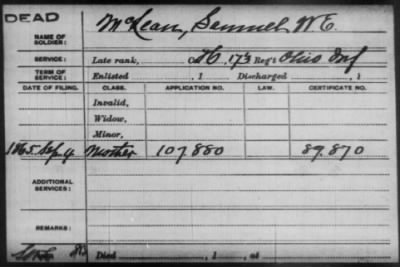 DEAD
NAME OF SOLDIER: McKean, Samuel W.C.
SERVICE: Late rank, Co. H, 173 Reg't Ohio Inf
TERM OF SERVICE: Enlisted , 1 Discharged , 1
DATE OF FILING. CLASS. APPLICATION NO. LAW. CERTIFICATE NO.
Invalid,
Widow,
Minor,
1865 Sep. 4 Mother 107880 89.870
ADDITIONAL SERVICES:
REMARKS:
Died , 1 , at